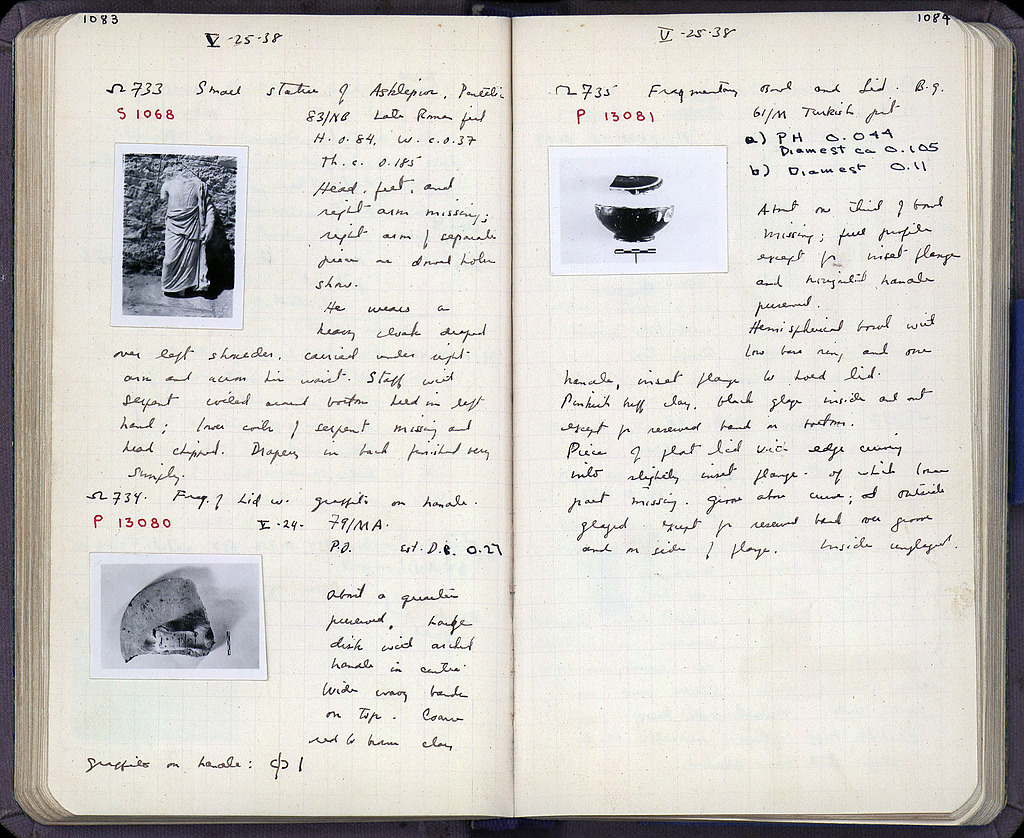 1083
V-25-38
Ω 733 Small statue of Asklepios. Pentelic
S 1068
83/NB Late Roman fill
H. 0.84. W. c. 0.37
Th. c. 0.185
Head, feet, and
right arm missing;
right arm of separate
piece as dowel holes
show.
He wears a
heavy cloak draped
over left shoulder, carried under right
arm and across his waist. Staff with
serpent coiled around bottom held in left
hand; lower coils of serpent missing and
head chipped. Drapery in back finished very
simply.
Ω 734. Frag. of Lid w. graffito on handle.
P 13080
V-24- 79/ΜΑ.
P.D. est. D. 0.27
About a quarter
preserved. Large
disk with arched
handle in centre.
Wide wavy bands
on top. Coarse
red to brown clay
graffito on handle:
1084
V-25-38
Ω 735 Fragmentary Bowl and Lid. B.g.
P 13081
61/Μ Turkish pit
a) PH 0.044
Diam est ca 0.105
b) Diam est 0.11
About one third of bowl
missing; full profile
except for inset flange
and horizontal handle
preserved.
Hemispherical bowl with
low base ring and one
handle, inset flange to hold lid.
Pinkish buff clay, black glaze inside and out
except for reserved band on bottom.
Piece of flat lid with edge curving
into slightly inset flange of which lower
part missing. groove above curve; outside
glazed except for reserved band over groove
and on side of flange. Inside unglazed.